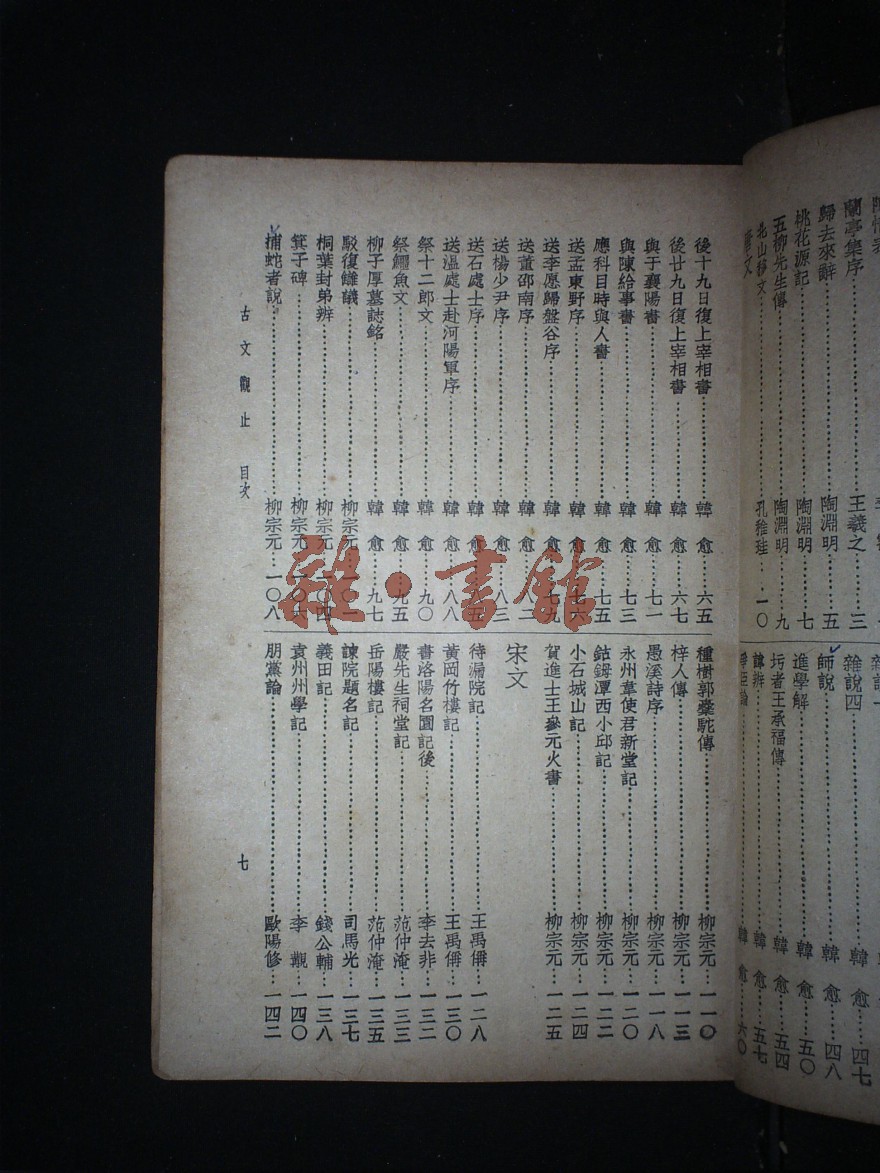 蘭亭集序……王羲之…三
歸去來辭……陶淵明…五
桃花源記……陶淵明…七
五柳先生傳……陶淵明…九
北山移文……孔稚珪…一〇
雜說四……韓愈…四七
師說……韓愈…四八
進學解……韓愈…五〇
圬者王承福傳……韓愈…五四
諱辨……韓愈…五七
爭臣論……韓愈…六〇
後十九日復上宰相書……韓愈…六五
後廿九日復上宰相書……韓愈…六七
與于襄陽書……韓愈…七一
與陳給事書……韓愈…七三
應科目時與人書……韓愈…七五
送孟東野序……韓愈…七六
送李愿歸盤谷序……韓愈…七九
送董邵南序……韓愈…八二
送楊少尹序……韓愈…八三
送石處士序……韓愈…八五
送溫處士赴河陽軍序……韓愈…八八
祭十二郎文……韓愈…九〇
祭鱷魚文……韓愈…九五
柳子厚墓誌銘……韓愈…九七
駁復讎議……柳宗元…一〇一
桐葉封弟辨……柳宗元…一〇四
箕子碑……柳宗元…一〇六
捕蛇者說……柳宗元…一〇八
種樹郭橐駝傳……柳宗元…一一〇
梓人傳……柳宗元…一一三
愚溪詩序……柳宗元…一一八
永州韋使君新堂記……柳宗元…一二〇
鈷鉧潭西小邱記……柳宗元…一二二
小石城山記……柳宗元…一二四
賀進士王參元火書……柳宗元…一二五
宋文
待漏院記……王禹偁…一二八
黃岡竹樓記……王禹偁…一三〇
書洛陽名園記後……李去非…一三二
嚴先生祠堂記……范仲淹…一三三
岳陽樓記……范仲淹…一三五
諫院題名記……司馬光…一三七
義田記……錢公輔…一三八
袁州州學記……李覯…一四〇
朋黨論……歐陽修…一四二
古文觀止 目次
七
雜·書館